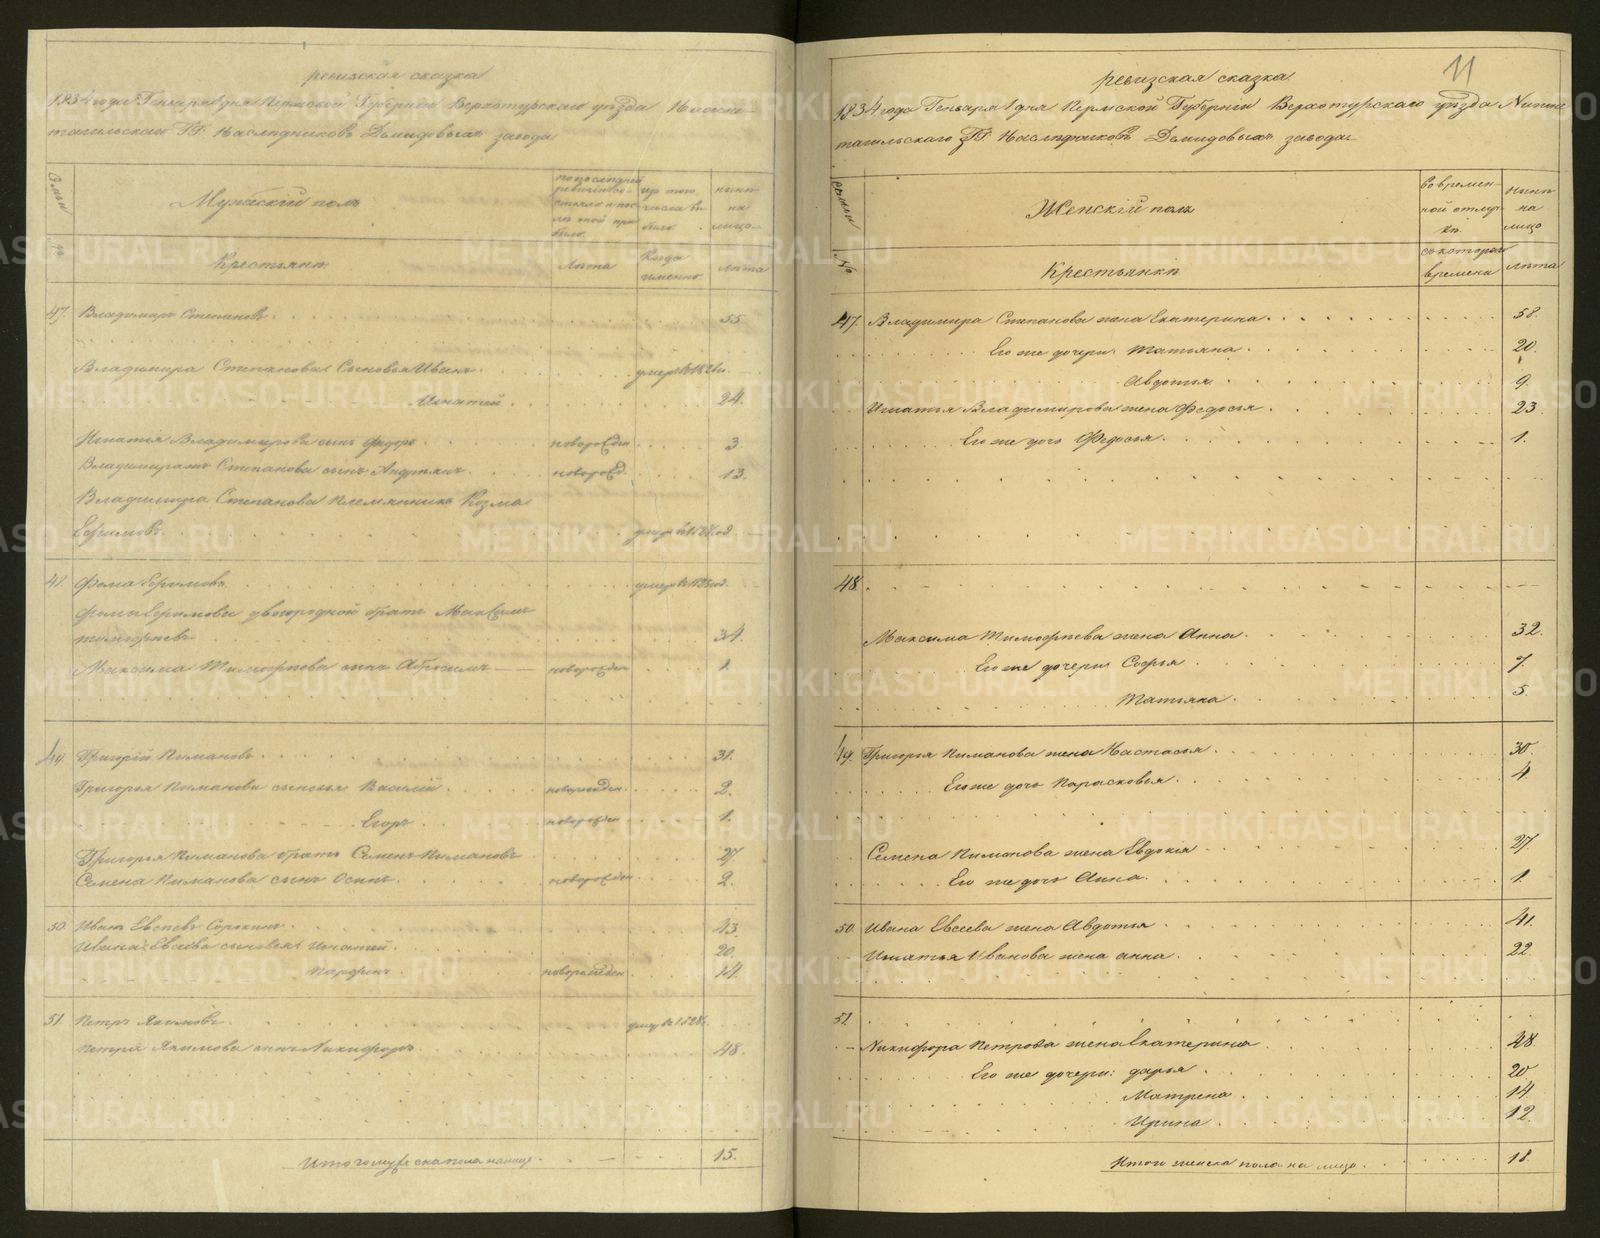 ревизская сказка
1834 года Генваря 1 дня Пермской Губерніи Верхотурскаго уѣзда Нижне-
тагильскаго ГГ. Наслѣдниковъ Демидовыхъ завода
Семьи
№
Мужескій полъ
по послѣдней
ревизіи со-
стояло и пос-
лѣ оной при-
было
из того
числа вы-
было
нынѣ
на
лицо
Крестьяне
Лѣта
Когда
именно
лѣта
47. Владимиръ Степановъ 55
Владимира Степанова Сыновья Иванъ умеръ въ 1826 г.
Игнатей 24.
Игнатія Владимирова сынъ Федоръ новорожден 3
Владимира Степанова сынъ Андреянъ новорожд. 13.
Владимира Степанова племянникъ Козма
Ефимовъ
48. Фома Ефимовъ
Фомы Ефимова двоюродной братъ Максимъ
Тимофѣевъ 34.
Максима Тимофѣева сынъ новорожден 1.
49. Григорій Пимановъ 31.
Григорья Пиманова сыновья Василій новорожден 2.
Егоръ новорожден 1.
Григорья Пиманова братъ Семенъ Пимановъ 27
Семена Пиманова сынъ Осипъ новорожден 2.
50. Иванъ Евсѣевъ Сорокинъ 43.
Ивана Евсѣева сыновья Игнатей 20.
Парфенъ новорожден 14.
51. Петръ Якимовъ умер въ 1828 г.
Петра Якимова сынъ Никифоръ 48.
Итого мужеска пола на лицо 15.
11
ревизская сказка
1834 года Генваря 1 дня Пермской Губерніи Верхотурскаго уѣзда Нижне
тагильскаго ГГ. Наслѣдниковъ Демидовыхъ завода
семьи
№
Женскій полъ
во времен-
ной отлуч-
кѣ
нынѣ
на
лицо
Крестьянки
съ котораго
времени
лѣта
47. Владимира Степанова жена Екатерина 58.
Его же дочери: Татьяна 20.
Авдотья 9.
Игнатья Владимирова жена Федосья 23
Его же дочь Федосья 1.
48.
Максима Тимофѣева жена Анна 32.
Его же дочери Софья 7.
Татьяна 5.
49. Григорья Пиманова жена Настасья 30.
Его же дочь Парасковья 4
Семена Пиманова жена Евдокія 27
Его же дочь Анна 1.
50. Ивана Евсеева жена Авдотья 41.
Игнатья Иванова жена Анна 22.
51.
Никифора Петрова жена Екатерина 48.
Его же дочери: Дарья 20
Матрена 14.
Ирина 12.
Итого женска пола на лицо 18.
METRIKI.GASO-URAL.RU